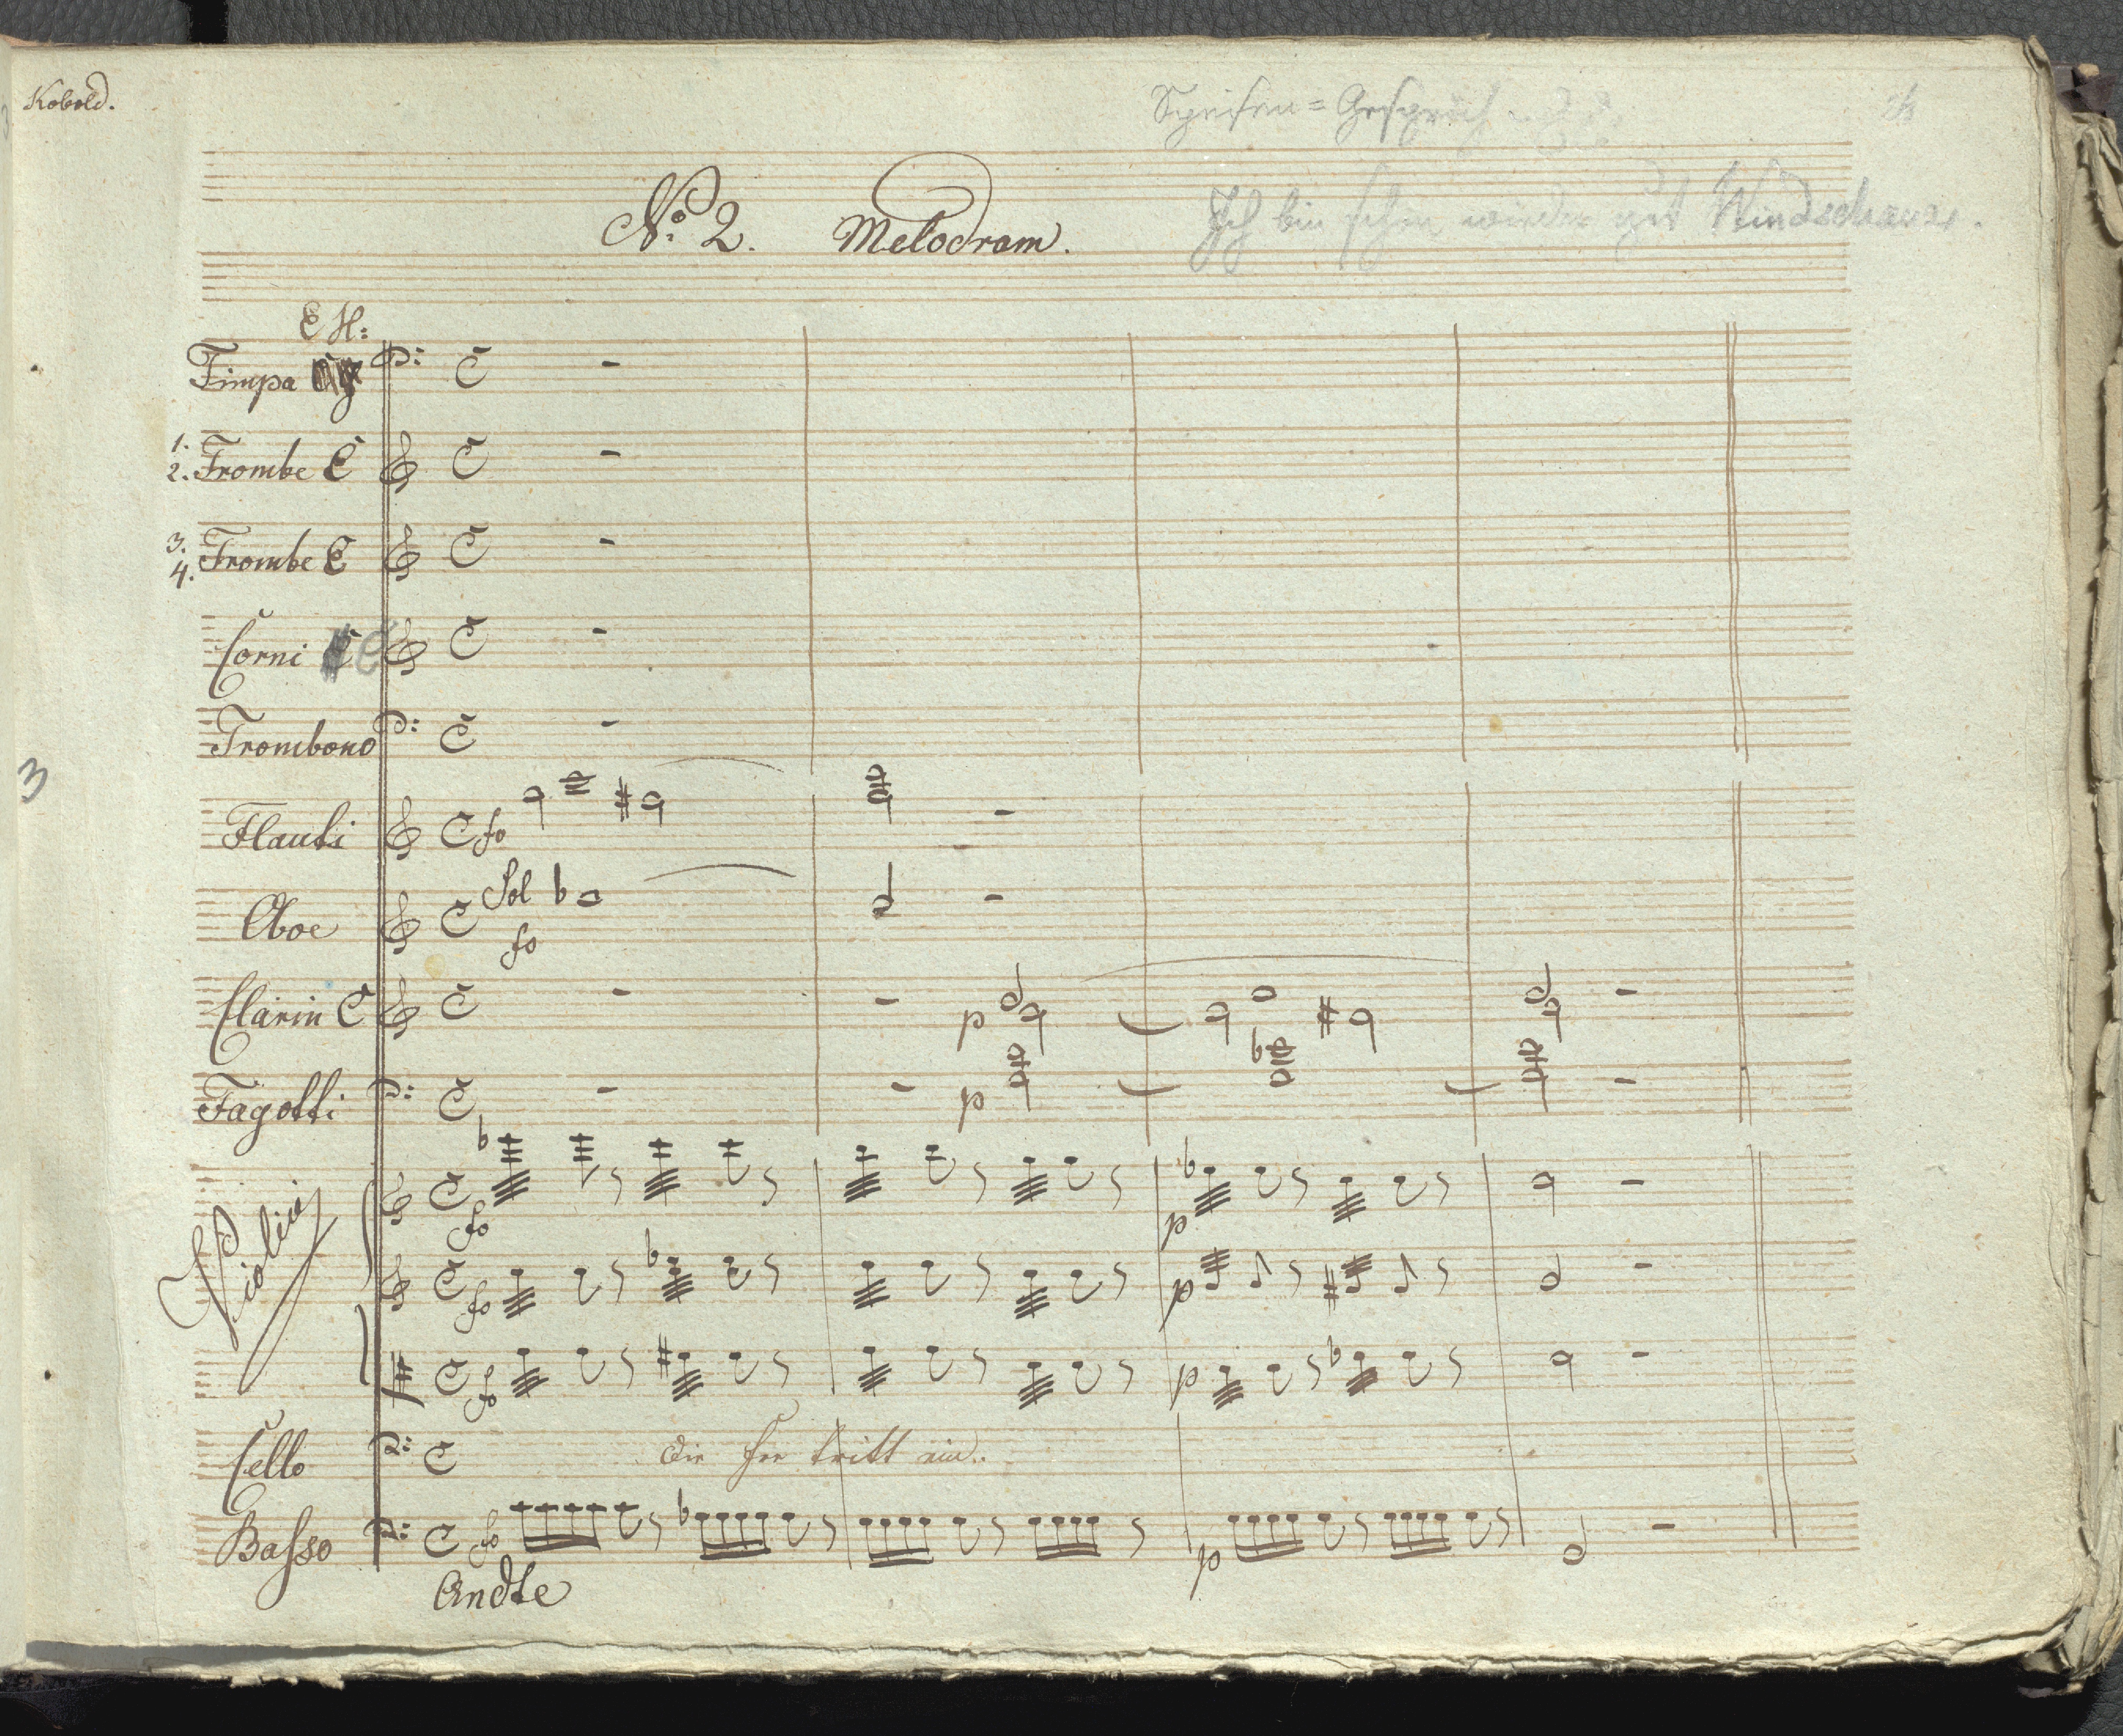 Kobold.
Speisen=Gespräch
No. 2. Melodram.
Ich bin schon wieder gut Windschaxer.
E H:
Timpa
1. 2. Trombe E
3. 4. Trombe E
Corni E
Trombono
3
Flauti fo
Oboe Sol fo
Clarin C p
Fagotti p
Violini fo p
fo p
fo p
Cello Die Fee tritt ein..
Basso fo p
Andte